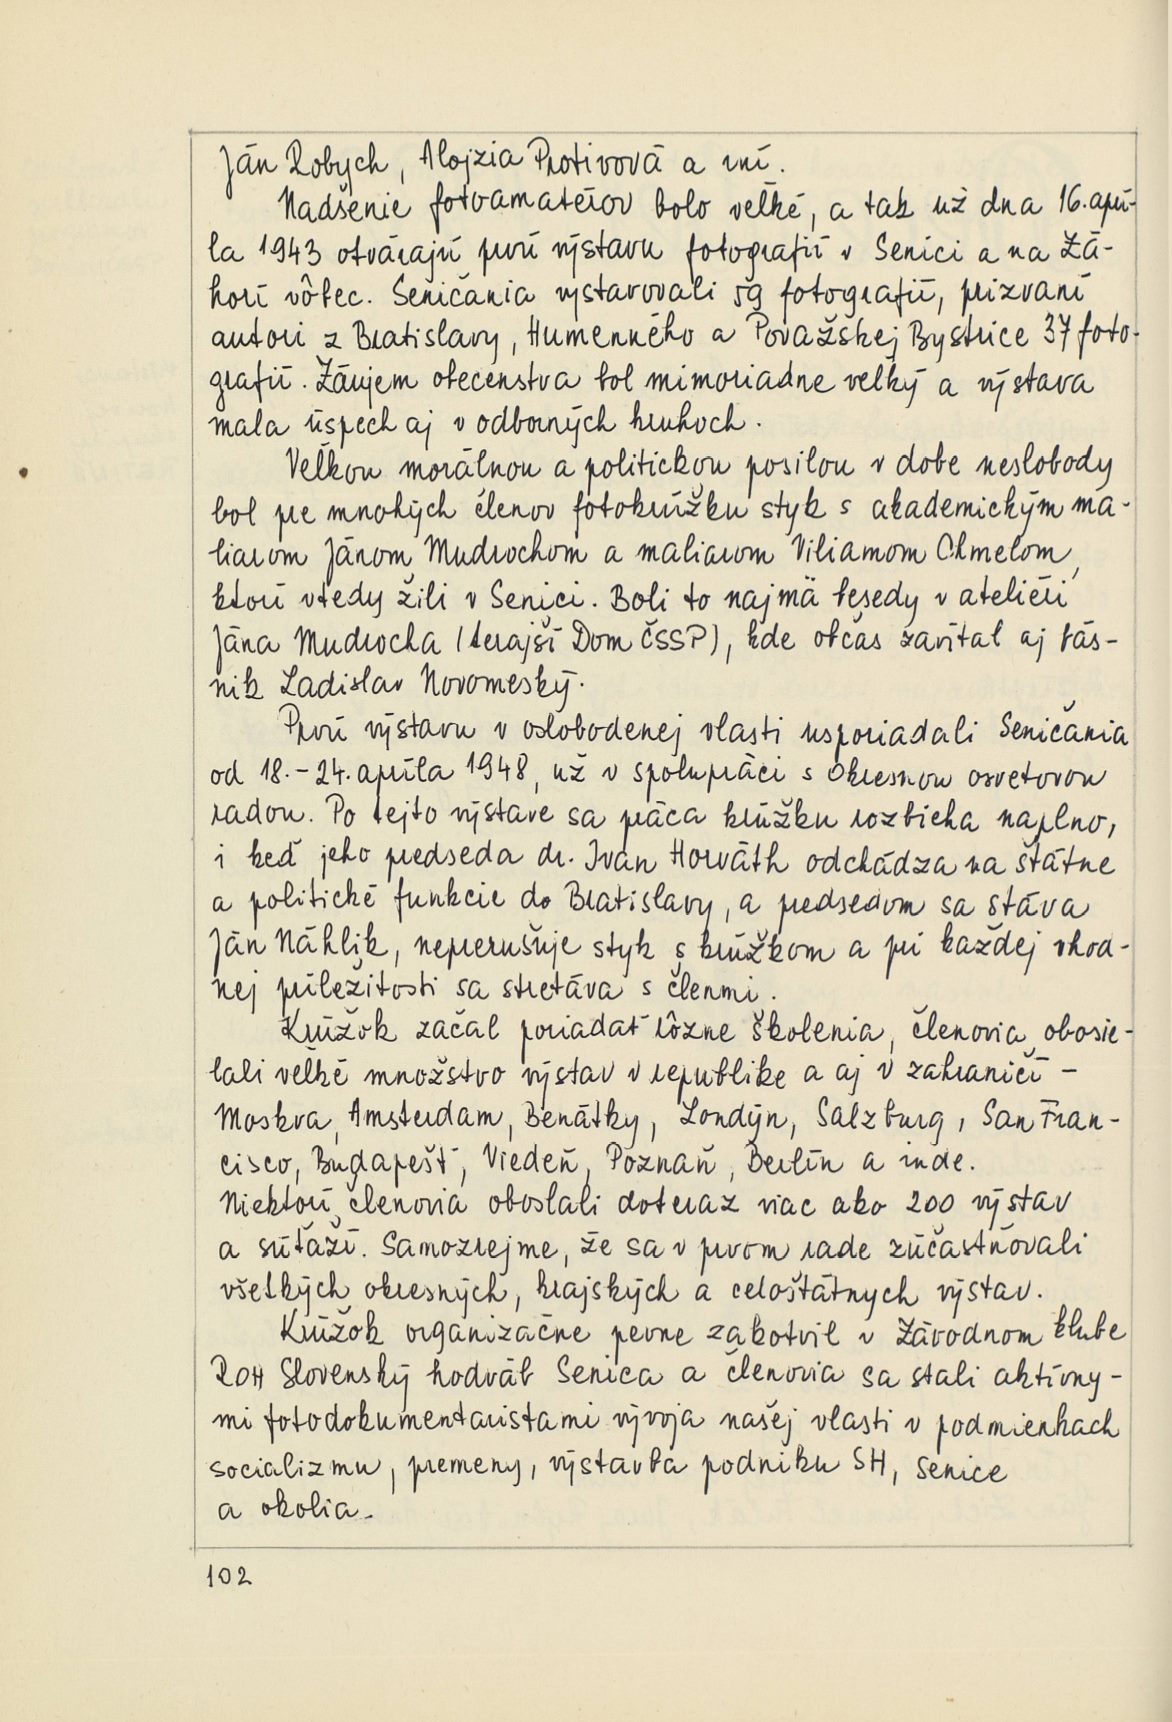 Ján Robych, Alojzia Protivová a iní.
Nadšenie fotoamatérov bolo veľké, a tak už dna 16. aprí-
la 1943 otvárajú prvú výstavu fotografií v Senici a na Zá-
horí vôbec. Seničania vystavovali 59 fotografií, prizvaní
autori z Bratislavy, Humenného a Považskej Bystrice 37 foto-
grafií. Záujem obecenstva bol mimoriadne veľký a výstava
mala úspech aj v odborných kruhoch.
Veľkou morálnou a politickou posilou v dobe neslobody
bol pre mnohých členov fotokrúžku styk s akademickým ma-
liarom Jánom Mudrochom a maliarom Viliamom Chmelom,
ktorí vtedy žili v Senici. Boli to najmä besedy v ateliéri
Jána Mudrocha (terajší Dom ČSSP), kde občas zavítal aj bás-
nik Ladislav Novomeský.
Prvú výstavu v oslobodenej vlasti usporiadali Seničania
od 18.-24. apríla 1948, už v spolupráci s Okresnou osvetovou
radou. Po tejto výstave sa práca krúžku rozbieha naplno,
i keď jeho predseda dr. Ivan Horváth odchádza na štátne
a politické funkcie do Bratislavy, a predsedom sa stáva
Ján Náhlik, neprerušuje styk s krúžkom a pri každej vhod-
nej príležitosti sa stretáva s členmi.
Krúžok začal poriadať rôzne školenia, členovia obosie-
lali veľké množstvo výstav v republike a aj v zahraničí -
Moskva, Amsterdam, Benátky, Londýn, Salzburg, San Fran-
cisco, Budapešť, Viedeň, Poznaň, Berlín a inde.
Niektorí členovia oboslali doteraz viac ako 200 výstav
a súťaží. Samozrejme, že sa v prvom rade zúčastňovali
všetkých okresných, krajských a celoštátnych výstav.
Krúžok organizačne pevne zakotvil v Závodnom klube
ROH Slovenský hodváb Senica a členovia sa stali aktívny-
mi fotodokumentaristami vývoja našej vlasti v podmienkach
socializmu, premeny, výstavba podniku SH, Senice
a okolia.
102